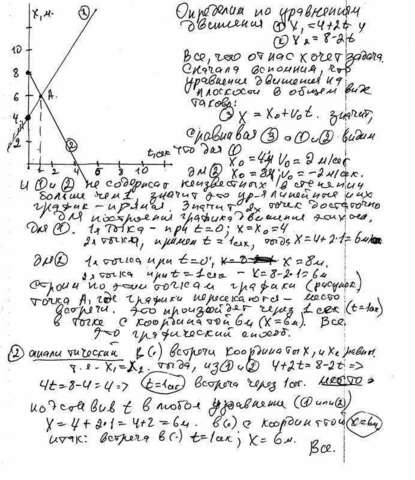 X, м.
10
8
6
4
2
0
2 4 6 8 10
t, сек
A
①
②
Определим по уравнениям
движения ① X₁ = 4+2t и
② X₂ = 8-2t
Всё, что от нас хочет задача.
Сначала вспомним, что
уравнение движения на
плоскости в общем виде
таково:
③ X = X₀ + V₀t. значит,
сравнивая ③ с ① и ② видим
что для ① X₀ = 4м V₀ = 2 м/сек
для ② X₀ = 8м, V₀ = -2 м/сек.
И ① и ② не содержат неизвестных t в степени
больше чем 1, значит это ур-я линейные их
график - прямая значит двух точек достаточно
для построения графика движения
для ①. 1я точка - при t=0; X=X₀=4
2я точка, примем t=1сек, тогда X=4+2·1=6м
для ② 1я точка при t=0, X=8м.
2я точка при t=1сек - X=8-2·1=6м
Строим по этим точкам графики (рисунок)
точка А, где графики пересекаются - место
встречи. Это произойдёт через 1 сек (t=1сек)
в точке с координатой 6м (X=6м). Все.
Это графический способ.
② аналитический в (·) встречи координаты X₁ и X₂ равны,
т.е - X₁=X₂ тогда, из ① и ② 4+2t = 8-2t =>
4t = 8-4 = 4 => t=1сек встреча через 1сек. место -
подставив t в любое уравнение (① или ②)
X = 4+2·1 = 4+2 = 6м. в (·) с координатой X=6м
итак: встреча в (·) t=1сек; X=6м.
Все.